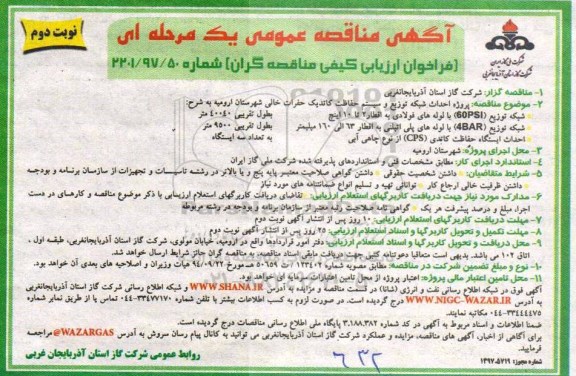 نوبت دوم
آگهی مناقصه عمومی یک مرحله ای
(فراخوان ارزیابی کیفی مناقصه گران) شماره ۲۲۰۱/۹۷/۵۰
شرکت گاز استان آذربایجانغربی
۱- مناقصه گزار: شرکت گاز استان آذربایجانغربی
۲- موضوع مناقصه: پروژه احداث شبکه توزیع و سیستم حفاظت کاتدیک حفرات خالی شهرستان ارومیه به شرح:
شبکه توزیع (60PSI) با لوله های فولادی به اقطار ۲ تا ۱۰ اینچ بطول تقریبی ۴۰۰۴۰ متر
شبکه توزیع (4BAR) با لوله های پلی اتیلنی به اقطار ۶۳ الی ۱۶۰ میلیمتر بطول تقریبی ۹۵۰۰ متر
احداث ایستگاه حفاظت کاتدی (CPS) از نوع چاهی آبی به تعداد سه ایستگاه
۳- محل اجرای پروژه: شهرستان ارومیه
۴- استاندارد اجرای کار: مطابق مشخصات فنی و استانداردهای پذیرفته شده شرکت ملی گاز ایران
۵- شرایط متقاضیان: داشتن شخصیت حقوقی داشتن گواهی صلاحیت معتبر پایه پنج و یا بالاتر در رشته تاسیسات و تجهیزات از سازمان برنامه و بودجه
داشتن ظرفیت خالی ارجاع کار توانائی تهیه و تسلیم انواع ضمانتنامه های مورد نیاز
۶- مدارک مورد نیاز جهت دریافت کاربرگهای استعلام ارزیابی: تقاضای دریافت کاربرگهای استعلام ارزیابی با ذکر موضوع مناقصه و کارهای در دست
اجرا، مبلغ و درصد پیشرفت هر یک گواهی نامه صلاحیت رتبه معتبر از سازمان برنامه و بودجه در رشته مربوطه
۷- مهلت دریافت کاربرگهای استعلام ارزیابی: ۱۰ روز پس از انتشار آگهی نوبت دوم
۸- مهلت تکمیل و تحویل کاربرگها و اسناد استعلام ارزیابی: ۲۵ روز پس از انتشار آگهی نوبت دوم
۹- محل دریافت و تحویل کاربرگها و اسناد استعلام ارزیابی: دفتر امور قراردادها واقع در ارومیه، خیابان مولوی، شرکت گاز استان آذربایجانغربی، طبقه اول،
اتاق ۱۰۲ می باشد. بدیهی است متعاقبا دعوتنامه کتبی جهت دریافت مابقی اسناد مناقصه، به مناقصه گران حائز شرایط ارسال خواهد شد.
۱۰- نوع و مبلغ تضمین شرکت در مناقصه: مطابق مصوبه شماره ۱۲۳۴۰۲/ت ۵۰۶۵۹ مورخ ۹۴/۰۹/۲۲ هیأت وزیران و اصلاحیه های بعدی آن خواهد بود.
۱۱- محل تامین اعتبار مالی پروژه: اعتبار پروژه از محل تامین اعتبارات سرمایه ای خواهد بود.
آگهی فوق در شبکه اطلاع رسانی نفت و انرژی (شانا) در قسمت مناقصه و مزایده به آدرس WWW.SHANA.IR و شبکه اطلاع رسانی شرکت گاز استان آذربایجانغربی
به آدرس WWW.NIGC-WAZAR.IR درج گردیده است. در صورت لزوم به کسب اطلاعات بیشتر با تلفن شماره ۳۳۴۷۷۱۷۰-۰۴۴ تماس یا از طریق نمابر شماره
۳۳۴۴۴۴۷۵-۰۴۴ مکاتبه نمایند.
ضمنا اطلاعات و اسناد مربوط به آگهی در کد شماره ۳.۱۸۸.۳۸۲ پایگاه ملی اطلاع رسانی مناقصات درج گردیده است.
برای آگاهی از اخبار، آگهی های مناقصه، مزایده و عملکرد شرکت گاز استان آذربایجانغربی می توانید به کانال پیام رسان سروش به آدرس @WAZARGAS مراجعه
فرمایید.
روابط عمومی شرکت گاز استان آذربایجان غربی
شماره مجوز: ۱۳۹۷.۵۷۱۹
۶۳۲